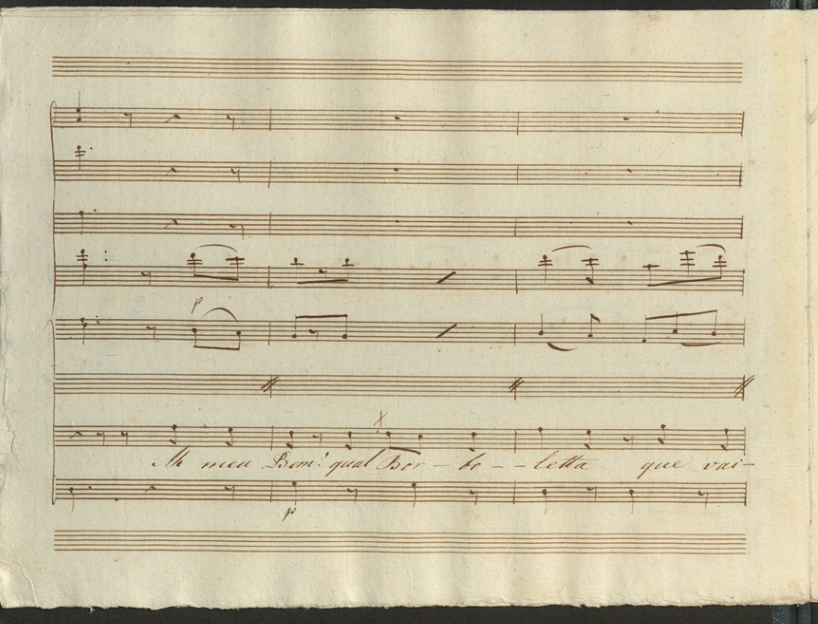 p
Ah meu Bem! qual Bor - bo - - letta que vai-
p